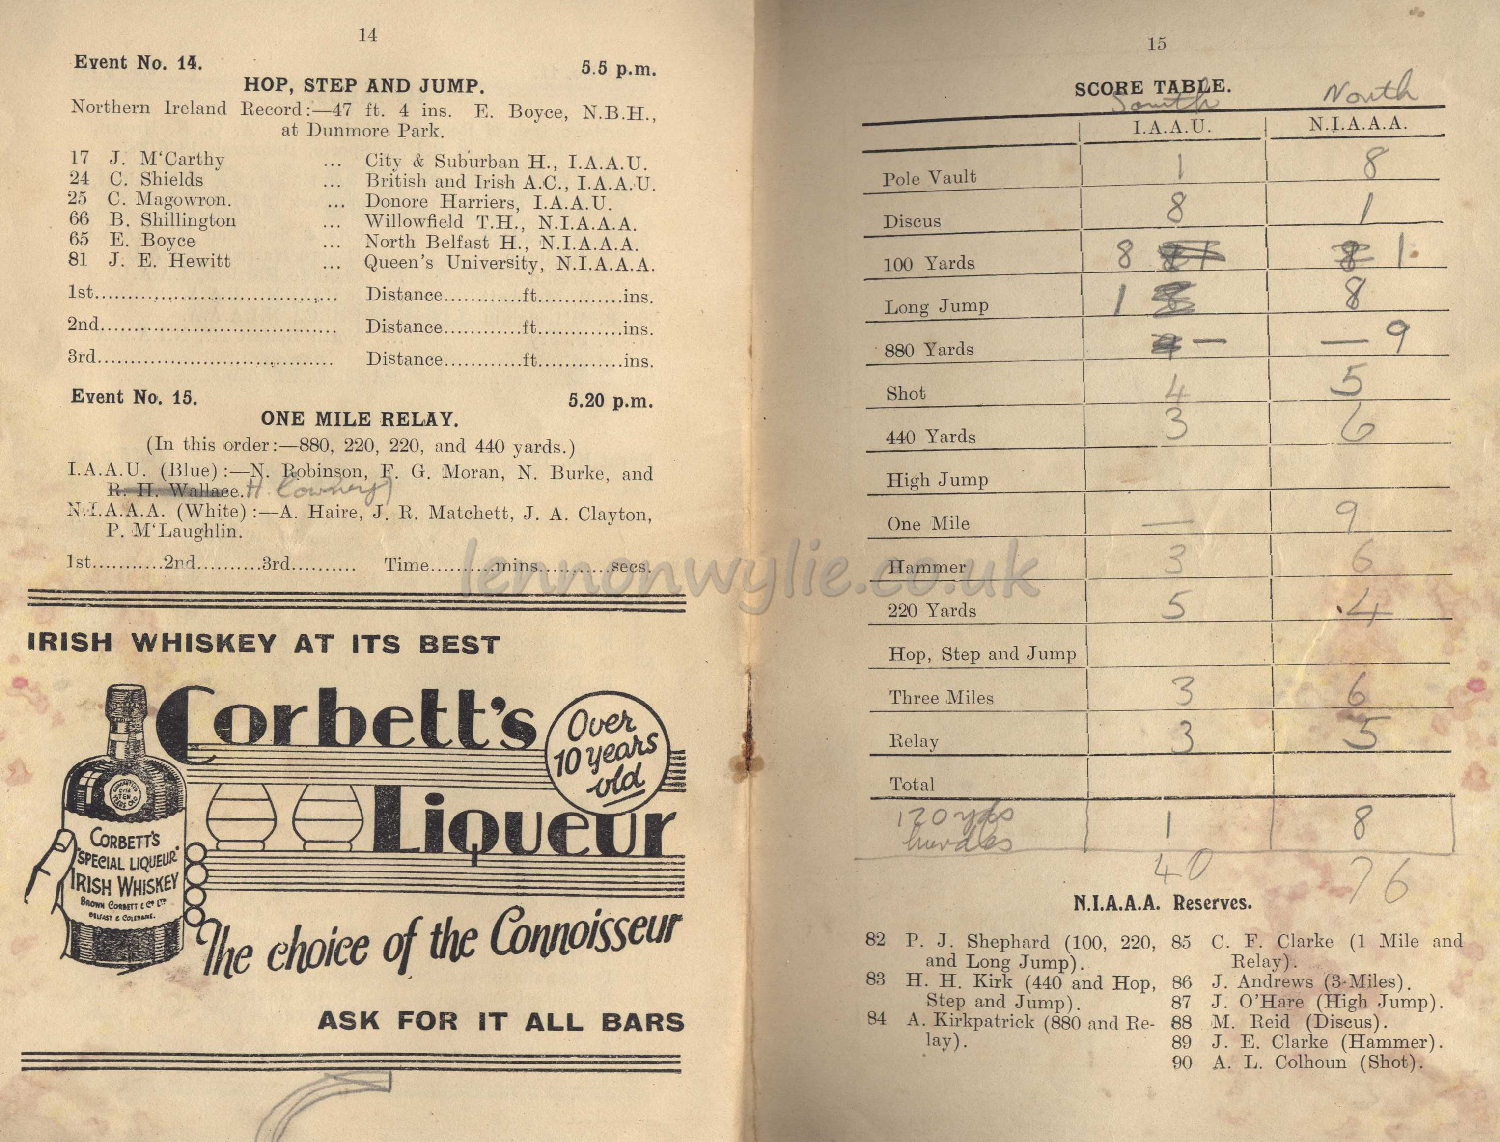 14
Event No. 14. 5.5 p.m.
HOP, STEP AND JUMP.
Northern Ireland Record:—47 ft. 4 ins. E. Boyce, N.B.H.,
at Dunmore Park.
17 J. M‘Carthy ... City & Suburban H., I.A.A.U.
24 C. Shields ... British and Irish A.C., I.A.A.U.
25 C. Magowron. ... Donore Harriers, I.A.A.U.
66 B. Shillington ... Willowfield T.H., N.I.A.A.A.
65 E. Boyce ... North Belfast H., N.I.A.A.A.
81 J. E. Hewitt ... Queen's University, N.I.A.A.A.
1st.................................... Distance............ft.............ins.
2nd................................... Distance............ft.............ins.
3rd................................... Distance............ft.............ins.
Event No. 15. 5.20 p.m.
ONE MILE RELAY.
(In this order:—880, 220, 220, and 440 yards.)
I.A.A.U. (Blue):—N. Robinson, F. G. Moran, N. Burke, and
R. H. Wallace. H.
N.I.A.A.A. (White):—A. Haire, J. R. Matchett, J. A. Clayton,
P. M‘Laughlin.
1st...........2nd..........3rd.......... Time..........mins...........secs.
IRISH WHISKEY AT ITS BEST
Corbett's
Over
10 years
old
Liqueur
CORBETT'S
"SPECIAL LIQUEUR"
IRISH WHISKEY
BROWN CORBETT & Co LTD
BELFAST & COLERAINE.
The choice of the Connoisseur
ASK FOR IT ALL BARS
15
SCORE TABLE.
South North
I.A.A.U. N.I.A.A.A.
Pole Vault 1 8
Discus 8 1
100 Yards 8 1
Long Jump 1 8
880 Yards — — 9
Shot 4 5
440 Yards 3 6
High Jump
One Mile — 9
Hammer 3 6
220 Yards 5 4
Hop, Step and Jump
Three Miles 3 6
Relay 3 5
Total
120 yds 1 8
hurdles
40 76
N.I.A.A.A. Reserves.
82 P. J. Shephard (100, 220,
and Long Jump).
83 H. H. Kirk (440 and Hop,
Step and Jump).
84 A. Kirkpatrick (880 and Re-
lay).
85 C. F. Clarke (1 Mile and
Relay).
86 J. Andrews (3-Miles).
87 J. O'Hare (High Jump).
88 M. Reid (Discus).
89 J. E. Clarke (Hammer).
90 A. L. Colhoun (Shot).
lennonwylie.co.uk